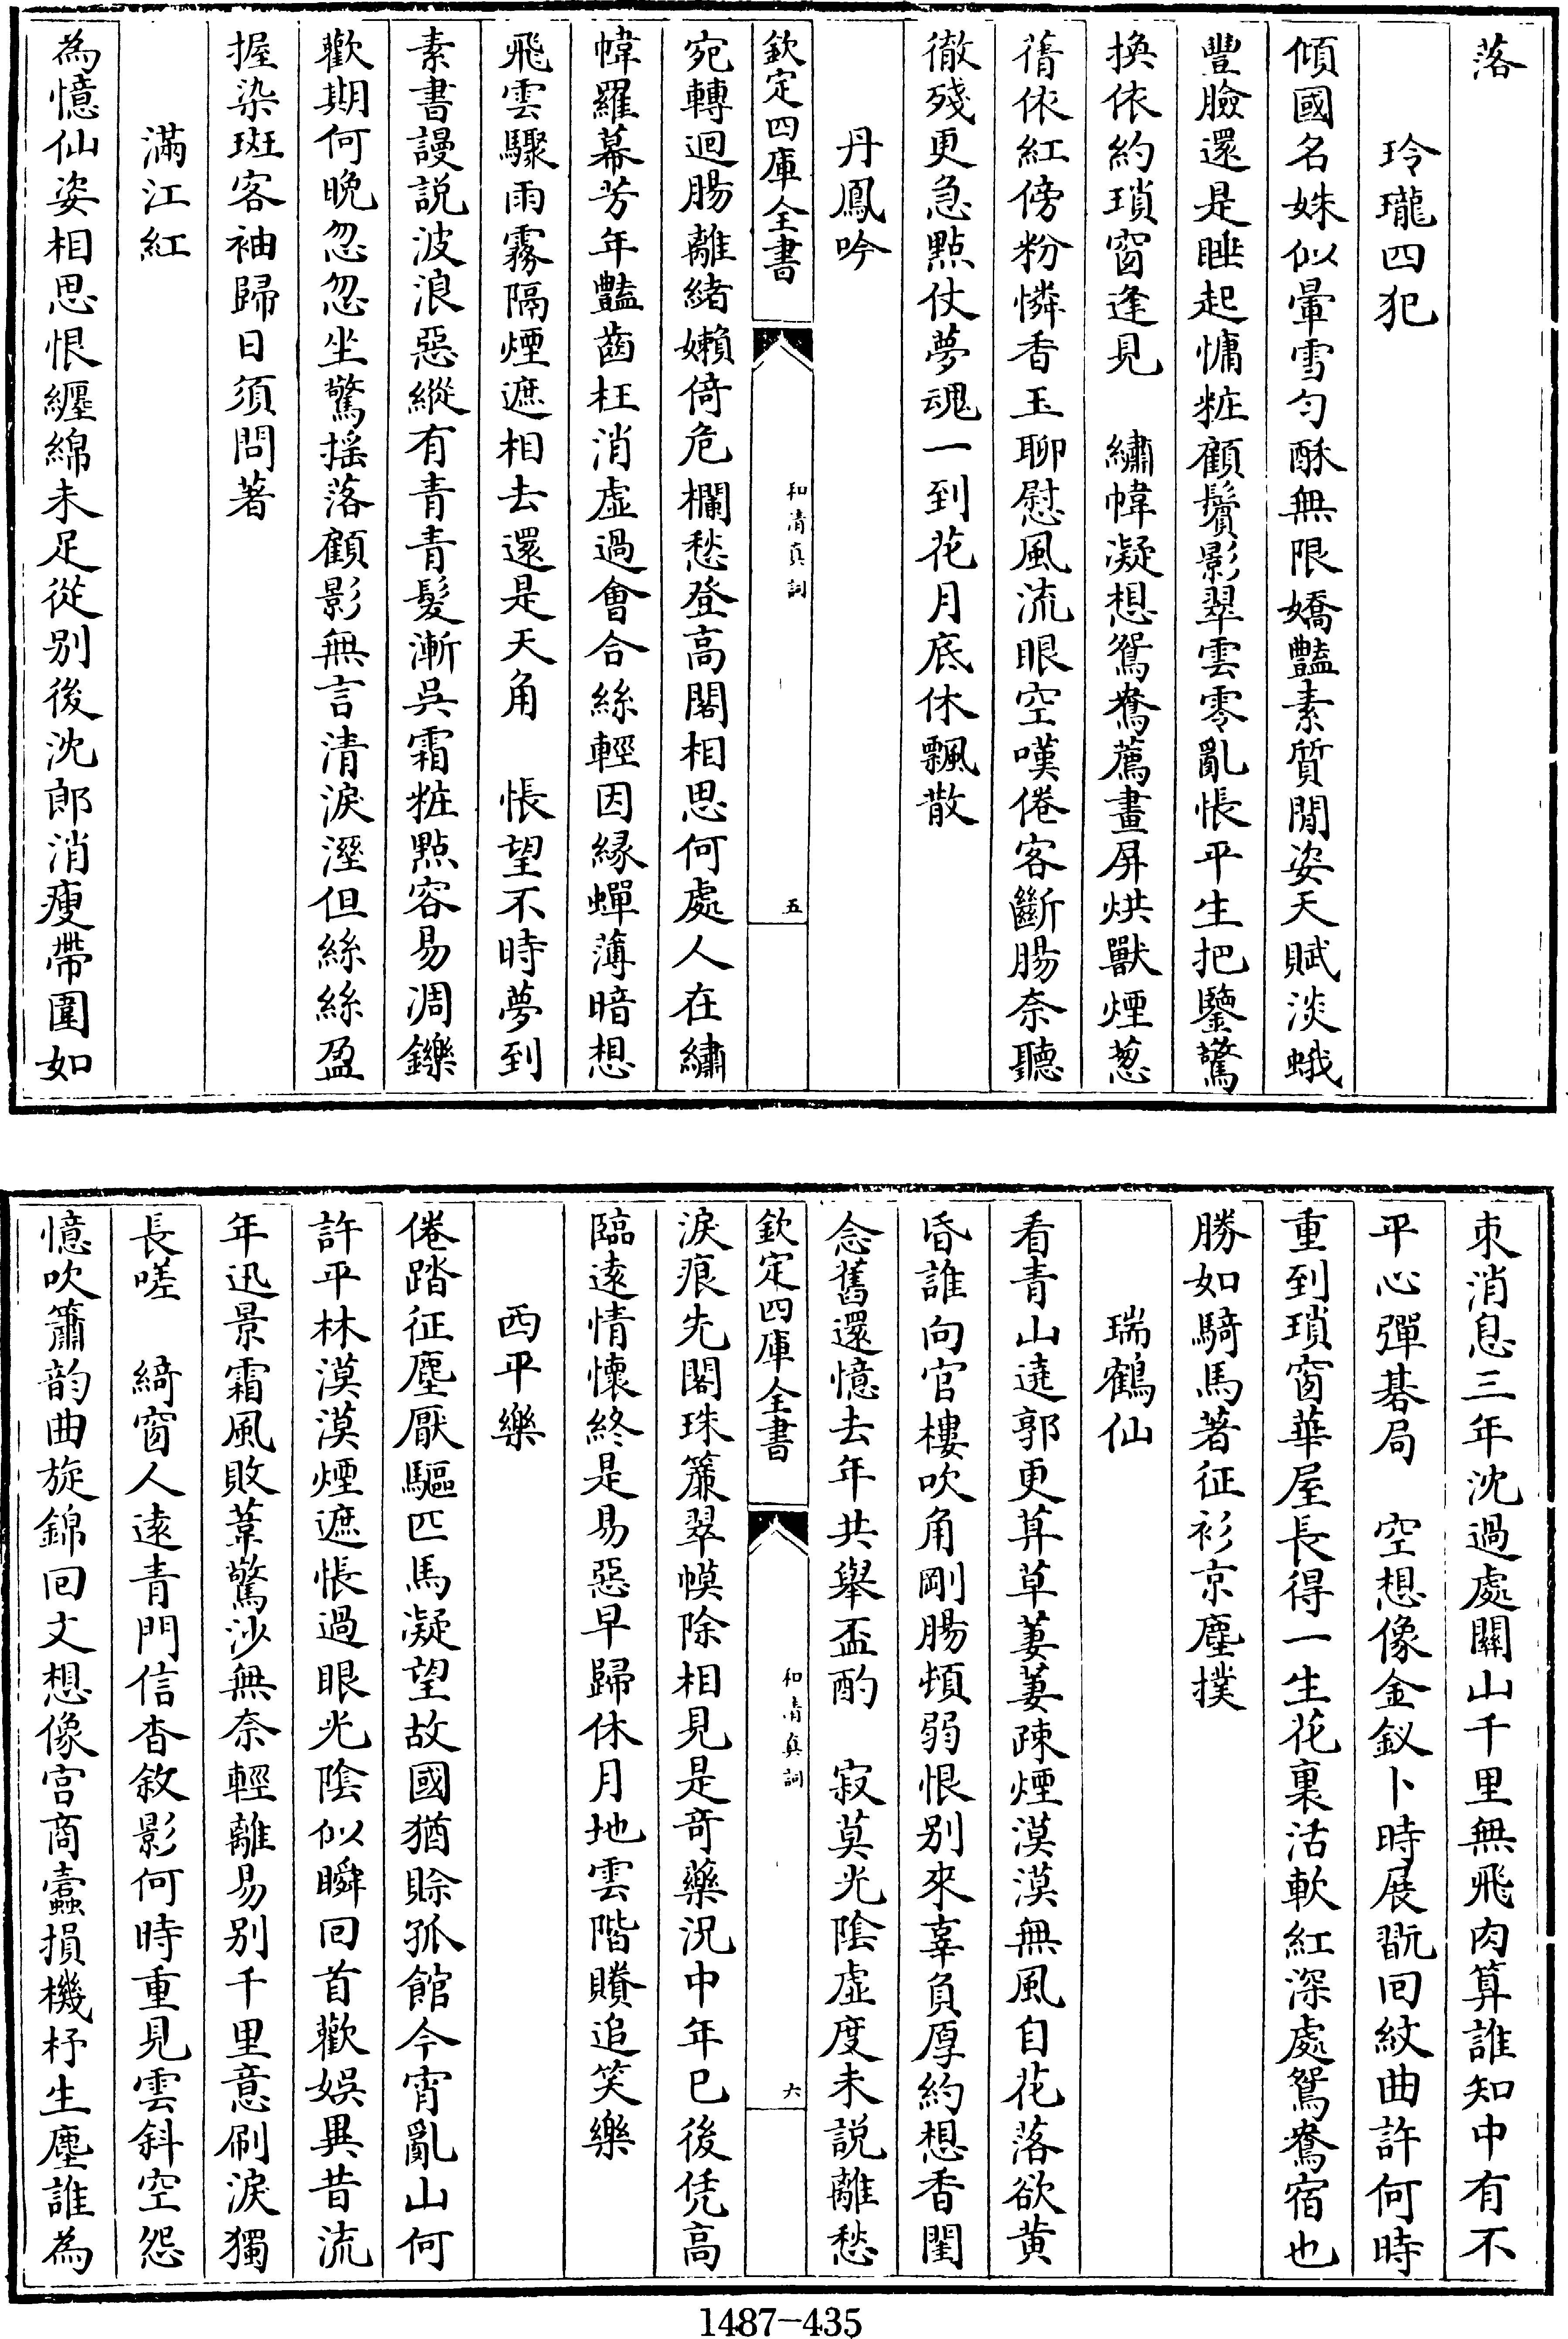 落
玲瓏四犯
傾國名姝似暈雪勻酥無限嬌豔素質閒姿天賦淡蛾
豐臉還是睡起慵粧顧鬢影翠雲零亂悵平生把鑒驚
換依約瑣窗逢見　繡幃凝想鴛鴦薦畫屏烘獸煙蔥
蒨依紅傍粉憐香玉聊慰風流眼空嘆倦客斷腸奈聽
徹殘更急點仗夢魂一到花月底休飄散
丹鳳吟
欽定四庫全書
和清真詞
五
宛轉迴腸離緒嬾倚危欄愁登高閣相思何處人在繡
幃羅幕芳年豔齒枉消虛過會合絲輕因緣蟬薄暗想
飛雲驟雨霧隔煙遮相去還是天角　悵望不時夢到
素書謾説波浪惡縱有青青髮漸吳霜粧點容易凋鑠
歡期何晚忽忽坐驚搖落顧影無言清淚溼但絲絲盈
握染斑客袖歸日須問著
滿江紅
為憶仙姿相思恨纏綿未足從别後沈郎消瘦帶圍如
束消息三年沈過處關山千里無飛肉算誰知中有不
平心彈棊局　空想像金釵卜時展翫回紋曲許何時
重到瑣窗華屋長得一生花裏活軟紅深處鴛鴦宿也
勝如騎馬著征衫京塵撲
瑞鶴仙
看青山遶郭更萛草萋萋疎煙漠漠無風自花落欲黄
昏誰向官樓吹角剛腸頓弱恨别來辜負厚約想香閨
念舊還憶去年共舉盃酌　寂莫光陰虛度未説離愁
欽定四庫全書
和清真詞
六
淚痕先閣珠簾翠幙除相見是奇藥況中年已後凭高
臨遠情懷終是易惡早歸休月地雲階賸追笑樂
西平樂
倦踏征塵厭驅匹馬凝望故國猶賒孤館今宵亂山何
許平林漠漠煙遮悵過眼光陰似瞬回首歡娛異昔流
年迅景霜風敗葦驚沙無奈輕離易别千里意刷淚獨
長嗟　綺窗人遠青門信杳敘影何時重見雲斜空怨
憶吹簫韵曲旋錦回文想像宮商蠹損機杼生塵誰為
1487-435